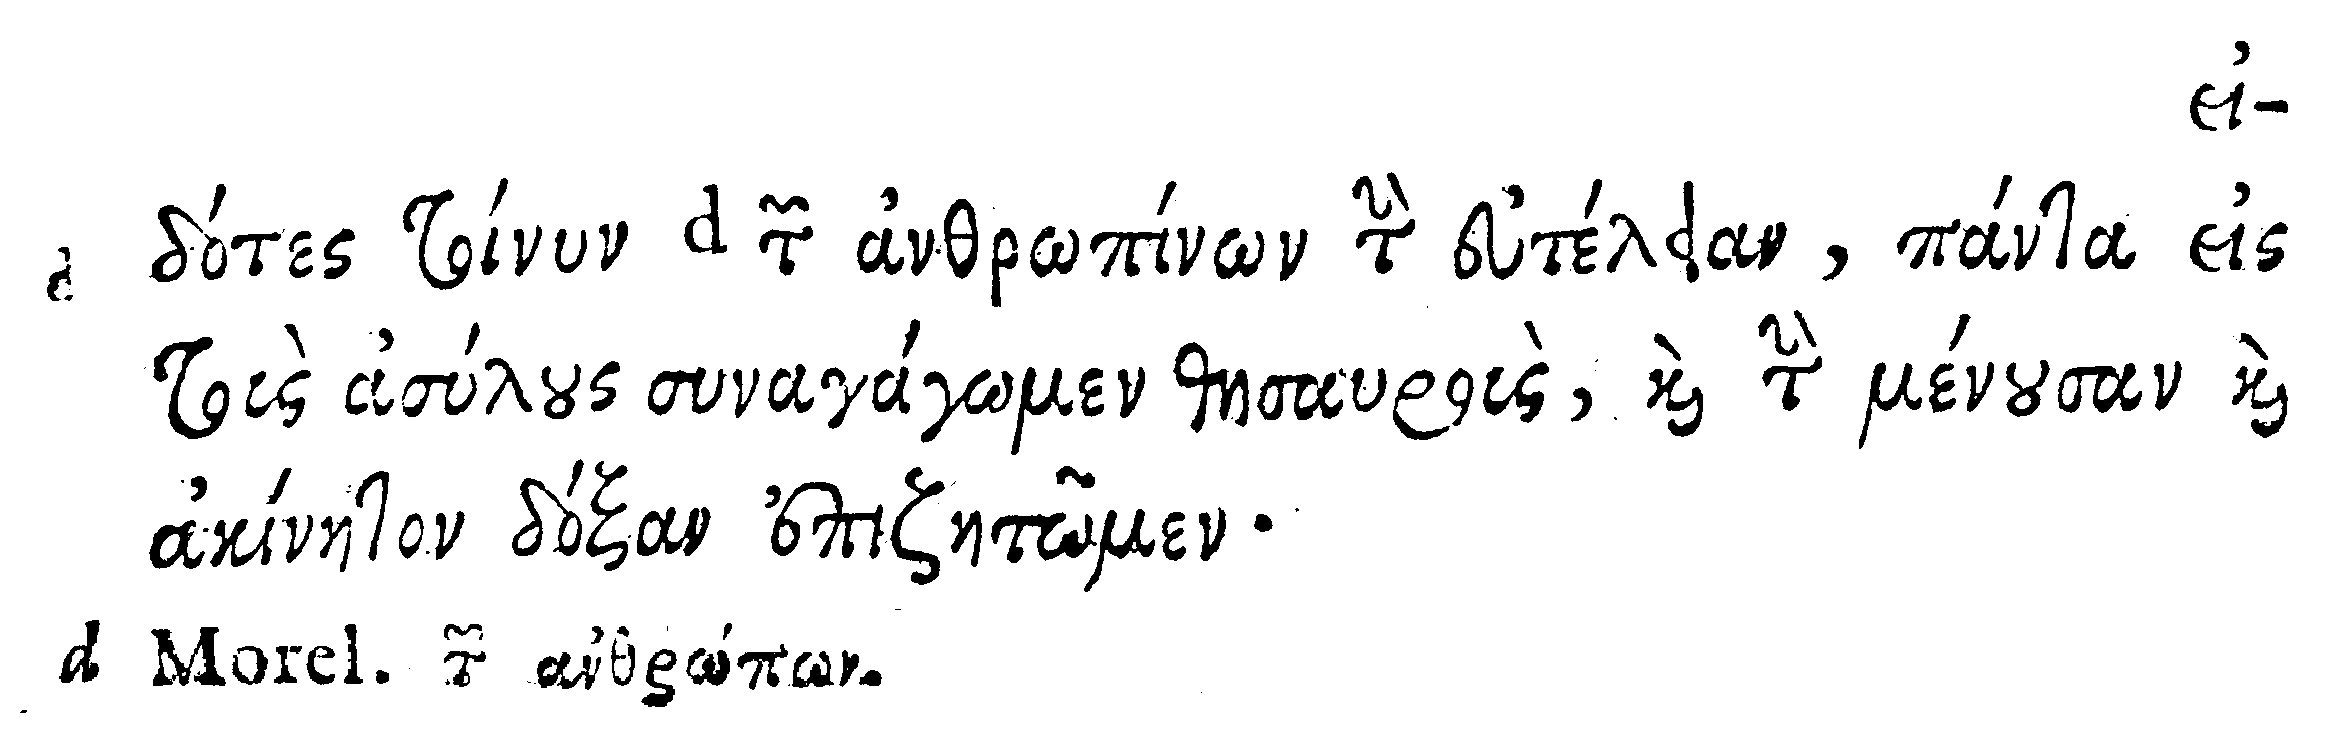 εἰ-
d δότες τοίνυν d τῶν ἀνθρωπίνων τὴν εὐτέλειαν, πάντα εἰς
τοὺς ἀσύλους συναγάγωμεν θησαυροὺς, καὶ τὴν μένουσαν καὶ
ἀκίνητον δόξαν ἐπιζητῶμεν·
d Morel. τῶν ἀνθρώπων.